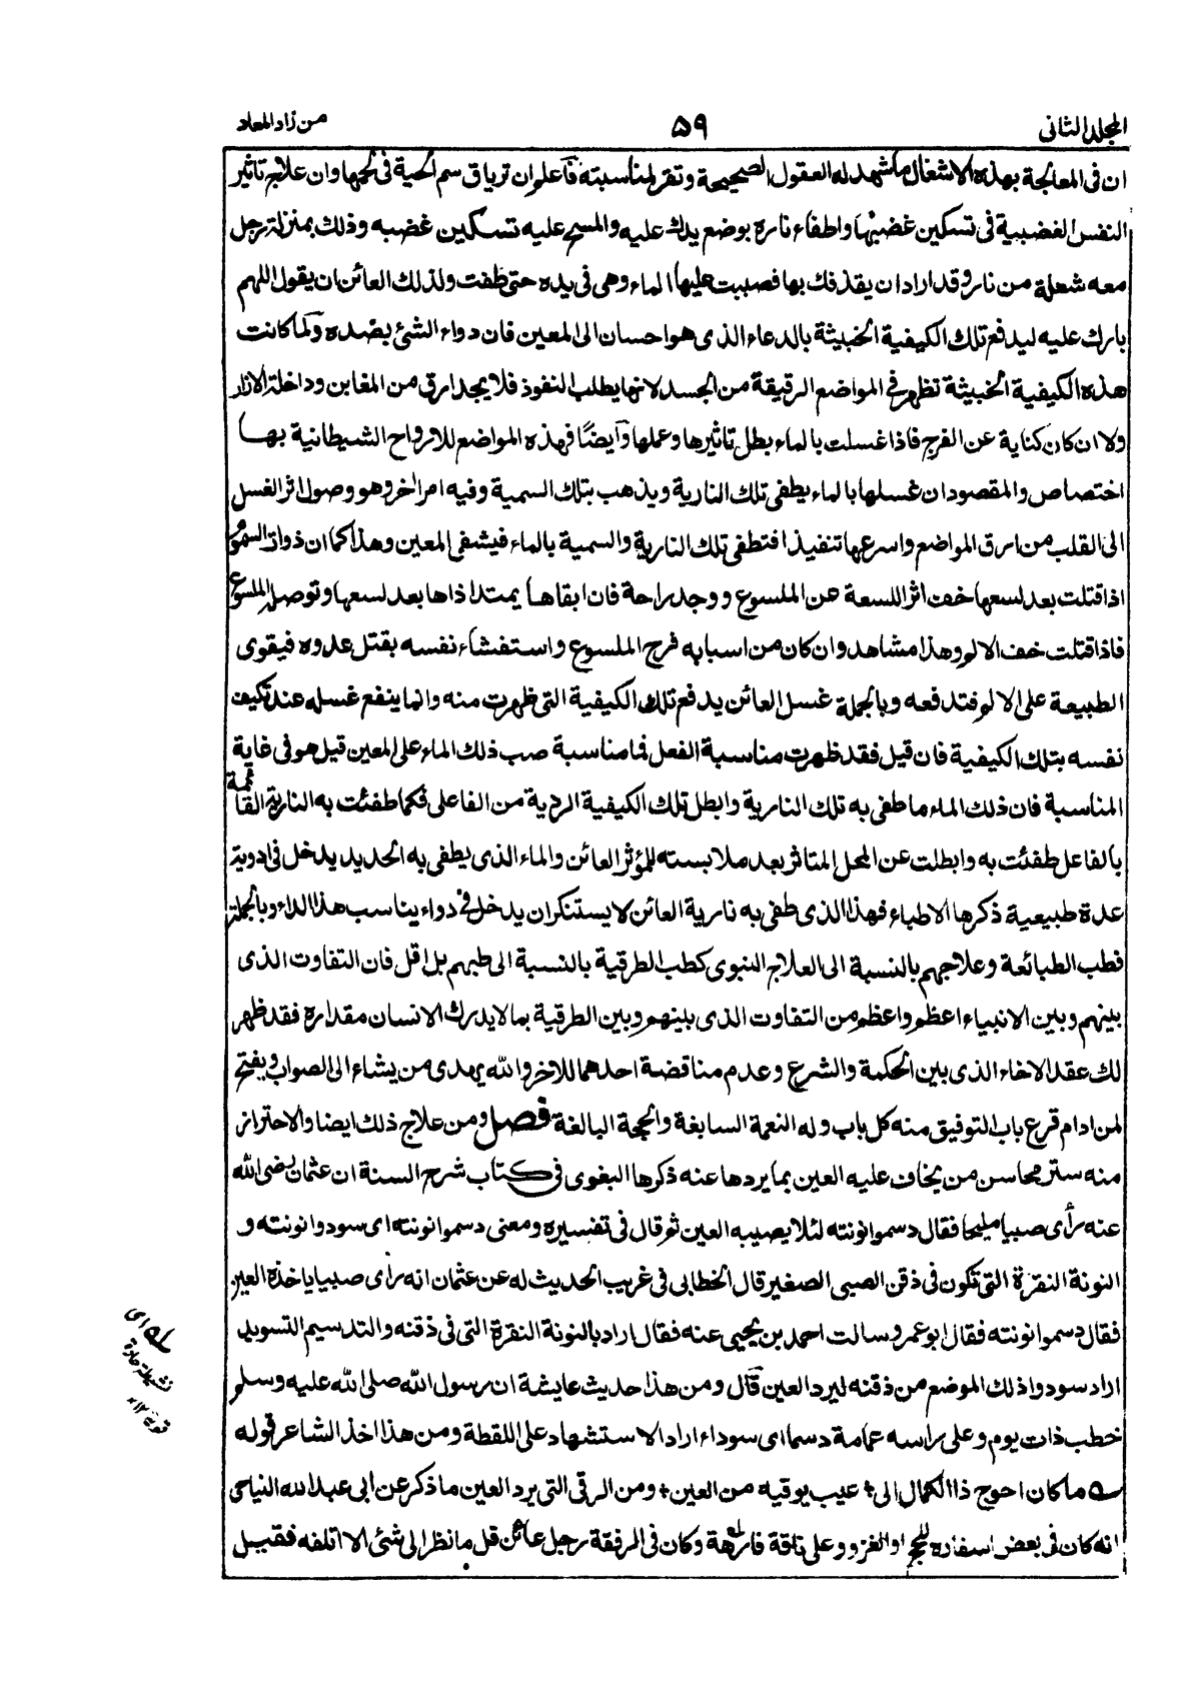 المجلد الثانى
۵۹
من زاد المعاد
ان فى المعالجة بهذه الاشغال ما تشهد له العقول الصحيحة وتقر لمناسبته فاعلم ان ترياق سم الحية فى لحمها وان علاج تاثير
النفس الغضبية فى تسكين غضبها واطفاء ناره بوضع يدك عليه والمسح عليه وتسكين غضبه وذلك بمنزلة رجل
معه شعلة من نار وقد اراد ان يقذفك بها فصببت عليها الماء وهى فى يده حتى طفت ولذلك العائن ان يقول اللهم
بارك عليه ليدفع تلك الكيفية الخبيثة بالدعاء الذى هو احسان الى المعين فان دواء الشئ بضده ولما كانت
هذه الكيفية الخبيثة تظهر فى المواضع الرقيقة من الجسد لانها يطلب النفوذ فلا يجد ارق من المغابن وداخلة الازار
ولا ان كان كناية عن الفرج فاذا غسلت بالماء بطل تاثيرها وعملها وايضًا فهذه المواضع للارواح الشيطانية بها
اختصاص والمقصود ان غسلها بالماء يطفى تلك النارية ويذهب بتلك السمية وفيه امر اخر وهو وصول اثر الغسل
الى القلب من ارق المواضع واسرعها تنفيذا فتطفى تلك النارية والسمية بالماء فيشفى المعين وهذا كما ان ذوات السموم
اذا قتلت بعد لسعها خف اثر اللسعة عن الملسوع ووجد راحة فان ابقاها يمتد اذاها بعد لسعها وتوصل الملسوع
فاذا قتلت خف الالم وهذا مشاهد وان كان من اسبابه فرج الملسوع واستشفاء نفسه بقتل عدوه فيقوى
الطبيعة على الالم فتدفعه وبالجملة غسل العائن يدفع تلك الكيفية التى ظهرت منه وانما ينفع غسله عند تكيف
نفسه بتلك الكيفية فان قيل فقد ظهرت مناسبة الفعل فما مناسبة صب ذلك الماء على المعين قيل هو فى غاية
المناسبة فان ذلك الماء ما طفى به تلك النارية وابطل تلك الكيفية الردية من الفاعل فكما طفئت به النارية القائمة
بالفاعل طفئت به وابطلت عن المحل المتاثر بعد ملابسته للمؤثر العائن والماء الذى يطفى به الحديد يدخل فى ادوية
عدة طبيعية ذكرها الاطباء فهذا الذى طفى به نارية العائن لا يستنكر ان يدخل فى دواء يناسب هذا الداء وبالجملة
فطب الطبائعة وعلاجهم بالنسبة الى العلاج النبوى كطب الطرقية بالنسبة الى طبهم بل اقل فان التفاوت الذى
بينهم وبين الانبياء اعظم واعظم من التفاوت الذى بينهم وبين الطرقية بما لا يدرك الانسان مقداره فقد ظهر
لك عقد الاخاء الذى بين الحكمة والشرع وعدم مناقضة احدهما للاخر والله يهدى من يشاء الى الصواب ويفتح
لمن ادام قرع باب التوفيق منه كل باب وله النعمة السابغة والحجة البالغة فصل ومن علاج ذلك ايضا والاحتراز
منه ستر محاسن من يخاف عليه العين بما يردها عنه ذكرها البغوى فى كتاب شرح السنة ان عثمان رضى الله
عنه رأى صبيا مليحا فقال دسموا نونته لئلا يصيبه العين ثم قال فى تفسيره ومعنى دسموا نونته اى سودوا نونته و
النونة النقرة التى تكون فى ذقن الصبى الصغير قال الخطابى فى غريب الحديث له عن عثمان انه رأى صبيا ياخذه العين
فقال دسموا نونته فقال ابو عمر وسالت احمد بن يحيى عنه فقال اراد بالنونة النقرة التى فى ذقنه والتدسيم التسويد
اراد سودوا ذلك الموضع من ذقنه ليرد العين قال ومن هذا حديث عايشة ان رسول الله صلى الله عليه وسلم
خطب ذات يوم وعلى راسه عمامة دسما اى سوداء اراد الاستشهاد على اللفظة ومن هذا اخذ الشاعر قوله
ما كان احوج ذا الكمال الى + عيب يوقيه من العين + ومن الرقى التى يرد العين ما ذكر عن ابى عبد الله النياحى
انه كان فى بعض اسفاره للحج او الغزو وعلى ناقة فارهة وكان فى الرفقة رجل عائن قل ما نظر الى شئ الا اتلفه فقيل
له اى
نشيطة حادة
قوية ۱۲